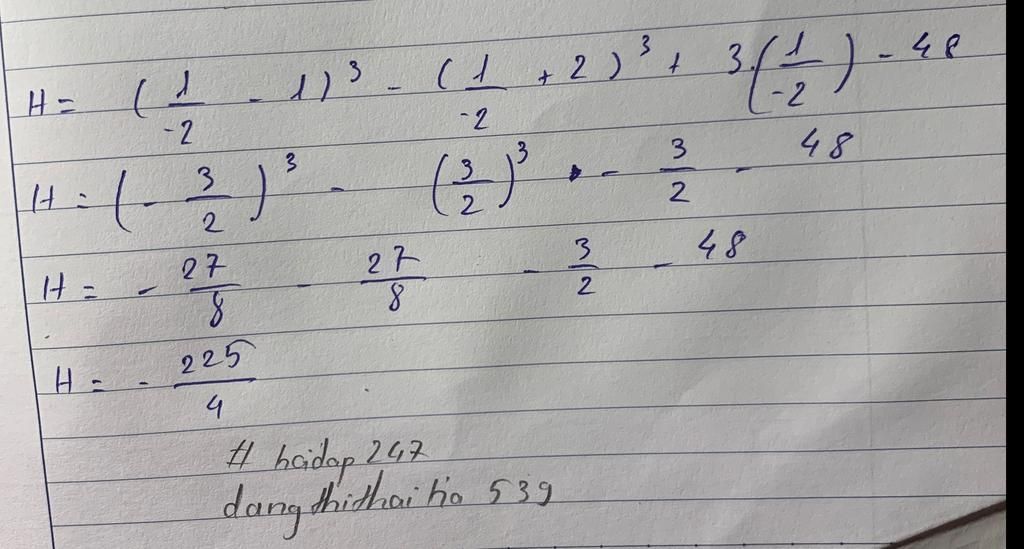 H = (1/-2 - 1)³ - (1/-2 + 2)³ + 3.(1/-2) - 48
H = (- 3/2)³ - (3/2)³ - 3/2 - 48
H = - 27/8 - 27/8 - 3/2 - 48
H = - 225/4
# hoidap 247
dangthithai ha 539